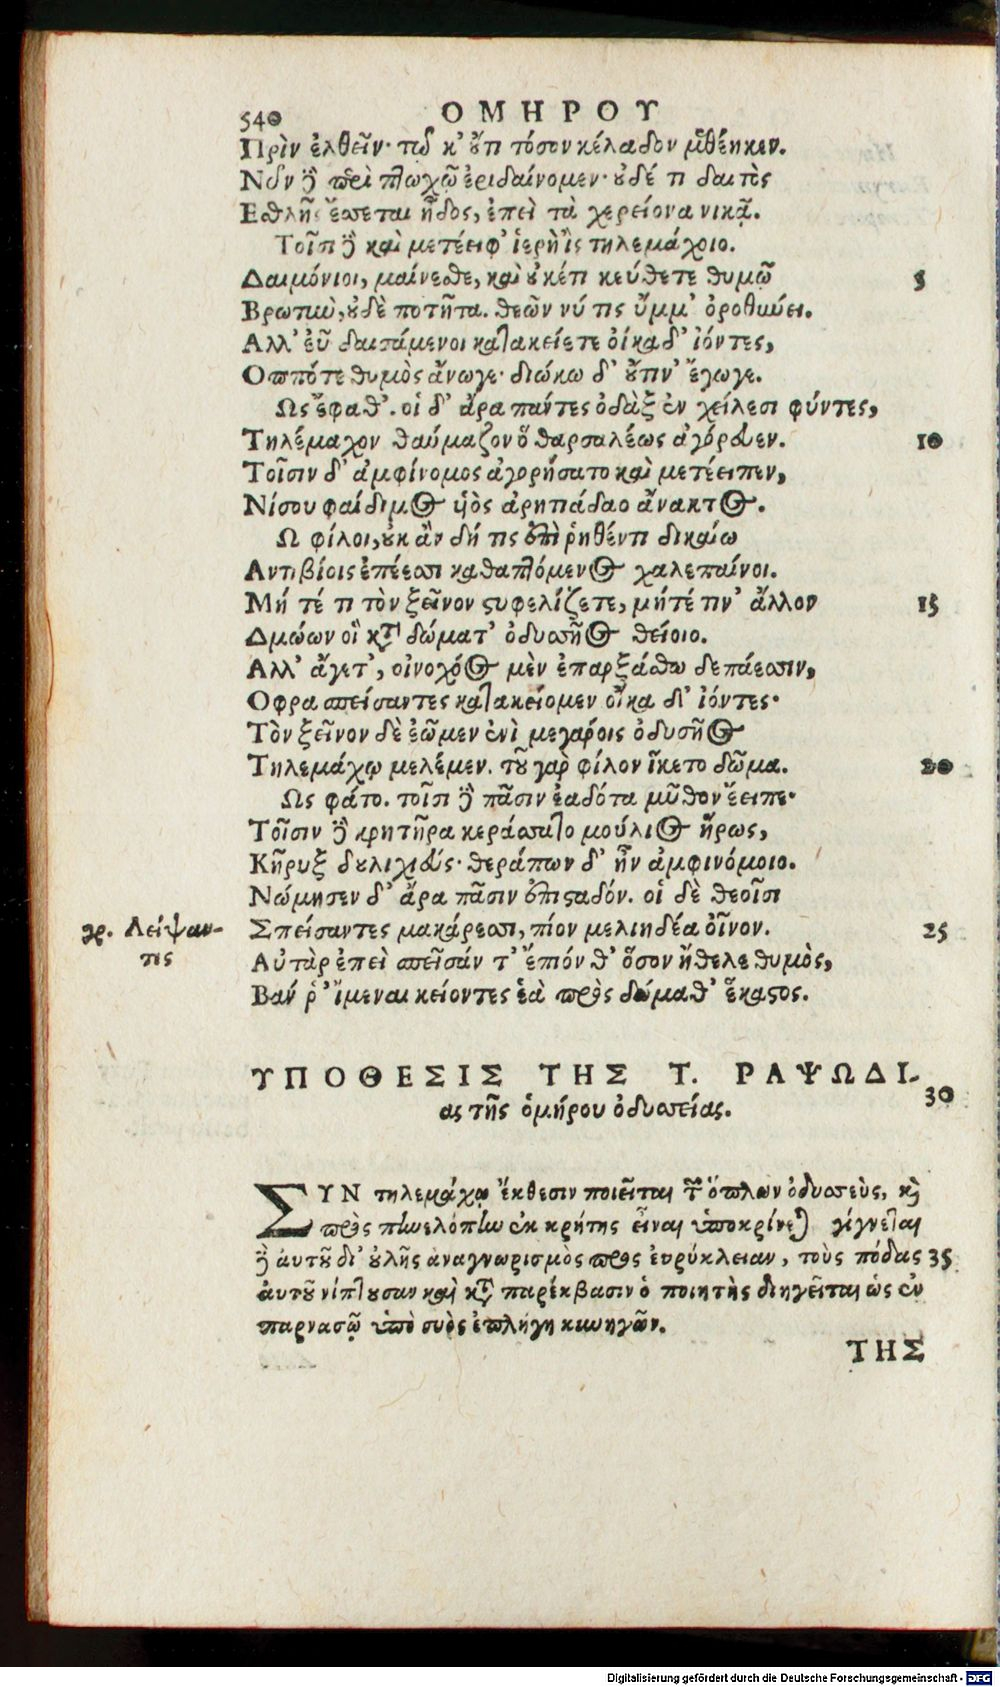 540 ΟΜΗΡΟΥ
Πρὶν ἐλθεῖν· τῷ κ' οὔτι τόσον κέλαδον μεθέηκεν.
Νῦν δὲ περὶ πτωχῶν ἐριδαίνομεν· οὐδέ τι δαιτὸς
Εσθλῆς ἔσσεται ἦδος, ἐπεὶ τὰ χερείονα νικᾷ.
Τοῖσι δὲ καὶ μετέειφ' ἱερὴ ἲς τηλεμάχοιο.
Δαιμόνιοι, μαίνεσθε, καὶ οὐκέτι κεύθετε θυμῷ 5
Βρωτὺν, οὐδὲ ποτῆτα. θεῶν νύ τις ὔμμ' ὀροθύνει.
Αλλ' εὖ δαισάμενοι κατακείετε οἴκαδ' ἰόντες,
Οππότε θυμὸς ἄνωγε· διώκω δ' οὔτιν' ἔγωγε.
Ως ἔφαθ'. οἱ δ' ἄρα πάντες ὀδὰξ ἐν χείλεσι φύντες,
Τηλέμαχον θαύμαζον ὃ θαρσαλέως ἀγόρευεν. 10
Τοῖσιν δ' ἀμφίνομος ἀγορήσατο καὶ μετέειπεν,
Νίσου φαίδιμος υἱὸς ἀρητιάδαο ἄνακτος.
Ω φίλοι, οὐκ ἂν δή τις ἐπὶ ῥηθέντι δικαίῳ
Αντιβίοις ἐπέεσσι καθαπτόμενος χαλεπαίνοι.
Μή τέ τι τὸν ξεῖνον στυφελίζετε, μήτέ τιν' ἄλλον 15
Δμώων οἳ κατὰ δώματ' ὀδυσσῆος θείοιο.
Αλλ' ἄγετ', οἰνοχόος μὲν ἐπαρξάσθω δεπάεσσιν,
Οφρα σπείσαντες κατακείομεν οἴκα δ' ἰόντες·
Τὸν ξεῖνον δὲ ἐῶμεν ἐνὶ μεγάροις ὀδυσῆος
Τηλεμάχῳ μελέμεν. τοῦ γαρ φίλον ἵκετο δῶμα. 20
Ως φάτο. τοῖσι δὲ πᾶσιν ἑαδότα μῦθον ἔειπε·
Τοῖσιν δὲ κρητῆρα κεράσσατο μούλιος ἥρως,
Κῆρυξ δουλιχιεύς· θεράπων δ' ἦν ἀμφινόμοιο.
Νώμησεν δ' ἄρα πᾶσιν ἐπισταδόν. οἱ δὲ θεοῖσι
γρ. Λείψαν-
τες
Σπείσαντες μακάρεσσι, πίον μελιηδέα οἶνον. 25
Αὐτὰρ ἐπεὶ σπεῖσάν τ' ἔπιόν θ' ὅσον ἤθελε θυμὸς,
Βάν ῥ' ἴμεναι κείοντες ἑὰ πρὸς δώμαθ' ἕκαστος.
ΥΠΟΘΕΣΙΣ ΤΗΣ Τ. ΡΑΨΩΔΙ-
ας τῆς ὁμήρου ὀδυσσείας. 30
ΣΥΝ τηλεμάχῳ ἔκθεσιν ποιεῖται τῶν ὅπλων ὀδυσσεὺς, καὶ
πρὸς πηνελόπην ἐκ κρήτης εἶναι ὑποκρίνεται γίγνεται
δὲ αὐτοῦ δι' οὐλῆς ἀναγνωρισμὸς πρὸς εὐρύκλειαν, τοὺς πόδας 35
αὐτοῦ νίπτουσαν καὶ κατὰ παρέκβασιν ὁ ποιητὴς διηγεῖται ὡς ἐν
παρνασῷ ὑπὸ συὸς ἐπλήγη κυνηγῶν.
ΤΗΣ
Digitalisierung gefördert durch die Deutsche Forschungsgemeinschaft - DFG